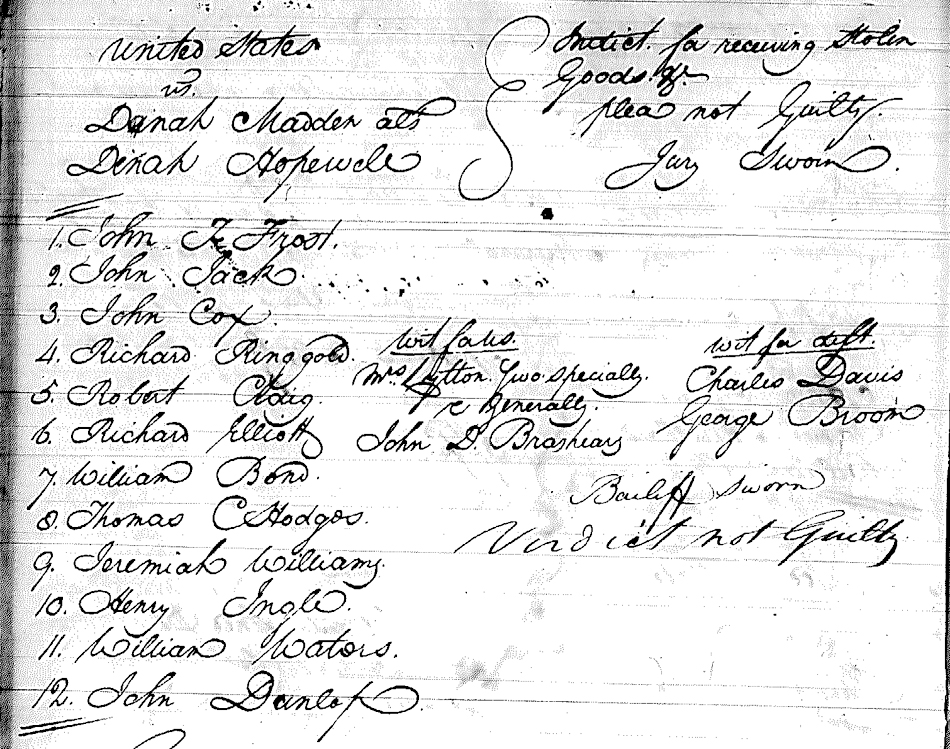 United States
vs.
Dinah Madden als
Dinah Hopewell
Indict. for receiving Stolen
Goods &c
plea not Guilty.
Jury Sworn.
1. John T Frost.
2. John Jack
3. John Cox.
4. Richard Ringgold.
5. Robert Craig.
6. Richard Elliott
7. William Bond.
8. Thomas C Hodges.
9. Jeremiah Williams.
10. Henry Ingle.
11. William Waters.
12. John Dunlop.
wit for us.
Mrs two specially.
& Generally.
John D. Brashears
wit for deft.
Charles Davis
George Broom
Bailiff sworn
Verdict not Guilty